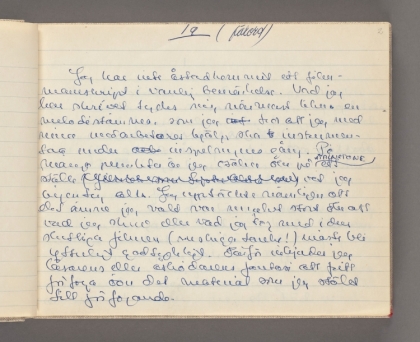 1a (förord)
Jag har inte åstadkommit ett film-
manuskript i vanlig bemärkelse. Vad jag
har skrivit tycks mig närmast likna en
melodistämma, som jag tror att jag med
mina medarbetares hjälp ska instrumen-
tera under inspelningens gång. På
många punkter är jag osäker och på ÅTMINSTONE ett
ställe vet jag
ingenting alls. Jag upptäckte nämligen att
det ämne jag valt var mycket stort och att
vad jag skrev eller vad jag tog med i den
slutliga filmen (ruskiga tanke!) måste bli
ytterligt godtyckligt. Därför inbjuder jag
läsarens eller åskådarens fantasi att fritt
förfoga över det material som jag ställt
till förfogande.